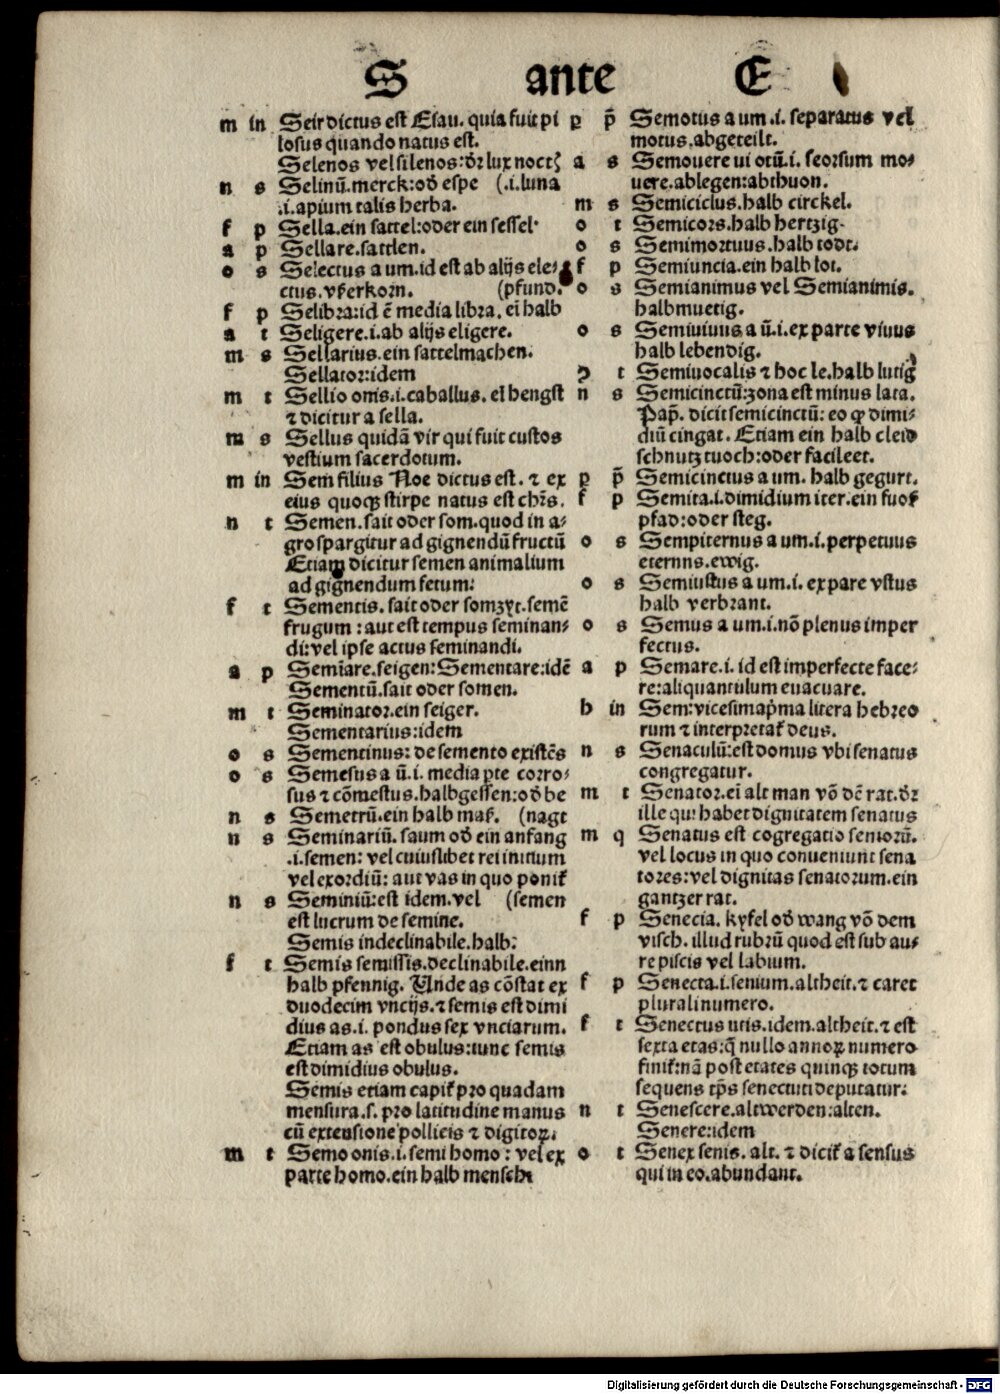 S ante E
m in Seir dictus est Esau. quia fuit pi
losus quando natus est.
Selenos vel silenos: dr̄ lux noctꝫ
n s Selinū. merck: od̄ espe (.i. luna
.i. apium talis herba.
f p Sella. ein sattel: oder ein sessel.
a p Sellare. sattlen.
o s Selectus a um. id est ab alijs ele⸗
ctus. vßerkorn. (pfund.
f p Selibra: id ē media libra. ei halb
a t Seligere .i. ab alijs eligere.
m s Sellarius. ein sattelmachen.
Sellator: idem
m t Sellio onis .i. caballus. ei hengst
⁊ dicitur a sella.
m s Sellus quidā vir qui fuit custos
vestium sacerdotum.
m in Sem filius Noe dictus est. ⁊ ex
eius quoqꝫ stirpe natus est chr̄s.
n t Semen. sait oder som. quod in a⸗
gro spargitur ad gignendū fructū
Etiam dicitur semen animalium
ad gignendum fetum:
f t Sementis. sait oder somzyt. semē
frugum: aut est tempus seminan⸗
di: vel ipse actus seminandi.
a p Semīare. seigen: Sementare: idē
Sementū. sait oder somen.
m t Seminator. ein seiger.
Sementarius: idem
o s Sementinus: de semento existēs
o s Semesus a ū. i. media ꝑte corro⸗
sus ⁊ cōmestus. halbgessen: od̄ be
n s Semetrū. ein halb maß. (nagt
n s Seminariū. saum od̄ ein anfang
.i. semen: vel cuiuslibet rei initium
vel exordiū: aut vas in quo ponit̄
n s Seminiū: est idem. vel (semen
est lucrum de semine.
Semis indeclinabile. halb:
f t Semis semissis. declinabile. einn
halb pfennig. Unde as cōstat ex
duodecim vncijs. ⁊ semis est dimi
dius as .i. pondus sex vnciarum.
Etiam as est obulus: tunc semis
est dimidius obulus.
Semis etiam capit̄ pro quadam
mensura .s. pro latitudine manus
cū extensione pollicis ⁊ digitoꝝ.
m t Semo onis .i. semi homo: vel ex
parte homo. ein halb mensch:
p p̄ Semotus a um .i. separatus vel
motus. abgeteilt.
a s Semouere ui otū .i. seorsum mo⸗
uere. ablegen: abthuon.
m s Semiciclus. halb circkel.
o t Semicors. halb hertzig.
o s Semimortuus. halb todt.
f p Semiuncia. ein halb lot.
o s Semianimus vel Semianimis.
halbmuetig.
o s Semiuiuus a ū .i. ex parte viuus
halb lebendig.
ꝯ t Semiuocalis ⁊ hoc le. halb lutig
n s Semicinctū: zona est minus lata.
Pap̄. dicit semicinctū: eo ꝙ dimi⸗
diū cingat. Etiam ein halb cleid
schnutztuoch: oder facileet.
p p̄ Semicinctus a um. halb gegurt.
f p Semita .i. dimidium iter. ein fuoß
pfad: oder steg.
o s Sempiternus a um .i. perpetuus
eternns. ewig.
o s Semiustus a um .i. ex pare vstus
halb verbrant.
o s Semus a um .i. nō plenus imper
fectus.
a p Semare .i. id est imperfecte face⸗
re: aliquantulum euacuare.
b in Sem: vicesimap̄ma litera hebreo
rum ⁊ interpretat̄ deus.
n s Senaculū: est domus vbi senatus
congregatur.
m t Senator. ei alt man vō dē rat. dr̄
ille qui habet dignitatem senatus
m q Senatus est cogregatio seniorū.
vel locus in quo conueniunt sena
tores: vel dignitas senatorum. ein
gantzer rat.
f p Senecia. kyfel od̄ wang vō dem
visch. illud rubrū quod est sub au⸗
re piscis vel labium.
f p Senecta .i. senium. altheit. ⁊ caret
plurali numero.
f t Senectus utis. idem. altheit. ⁊ est
sexta etas: q̄ nullo annoꝝ numero
finit̄: nā post etates quinqꝫ totum
sequens tp̄s senectuti deputatur:
n t Senescere. alt werden: alten.
Senere: idem
o t Senex senis. alt. ⁊ dicit̄ a sensus
qui in eo. abundant.
Digitalisierung gefördert durch die Deutsche Forschungsgemeinschaft - DFG